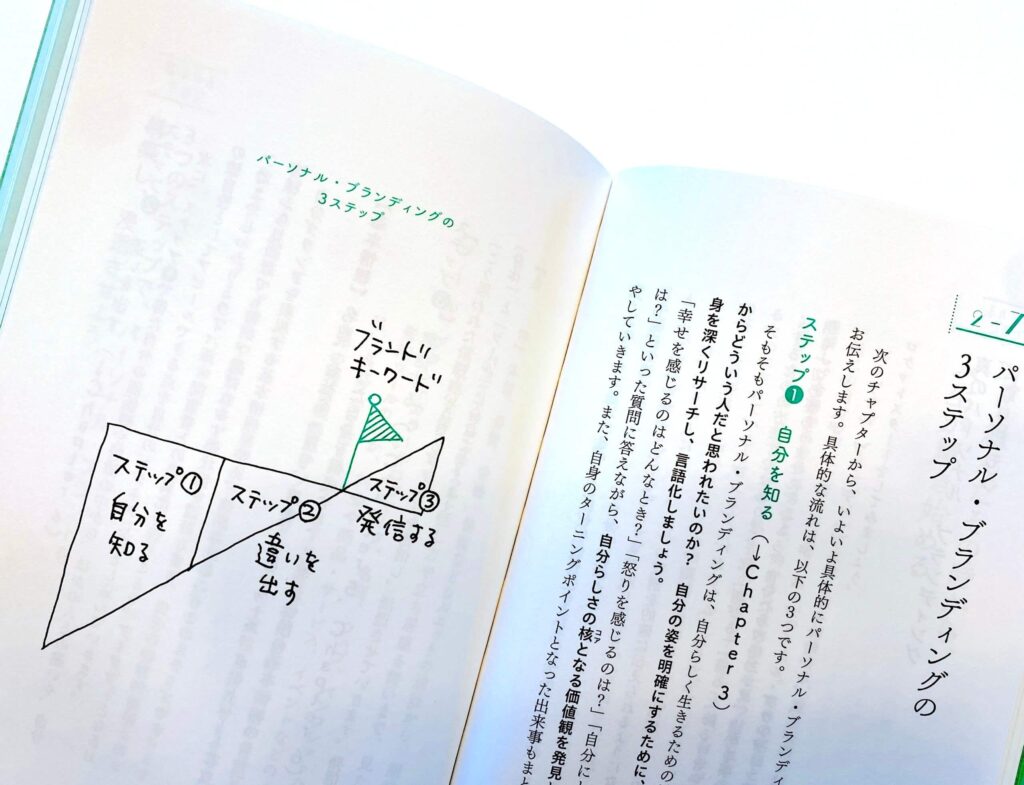 2-7
パーソナル・ブランディングの
3ステップ
次のチャプターから、いよいよ具体的にパーソナル・ブランディ
お伝えします。具体的な流れは、以下の3つです。
ステップ❶ 自分を知る（→Chapter 3）
そもそもパーソナル・ブランディングは、自分らしく生きるための
からどういう人だと思われたいのか？ 自分の姿を明確にするために、
身を深くリサーチし、言語化しましょう。
「幸せを感じるのはどんなとき？」「怒りを感じるのは？」「自分に
は？」といった質問に答えながら、自分らしさの核となる価値観を発見
やしていきます。また、自身のターニングポイントとなった出来事もまと
パーソナル・ブランディングの
3ステップ
ブランド
キーワード
ステップ①
自分を
知る
ステップ②
違いを
出す
ステップ③
発信する